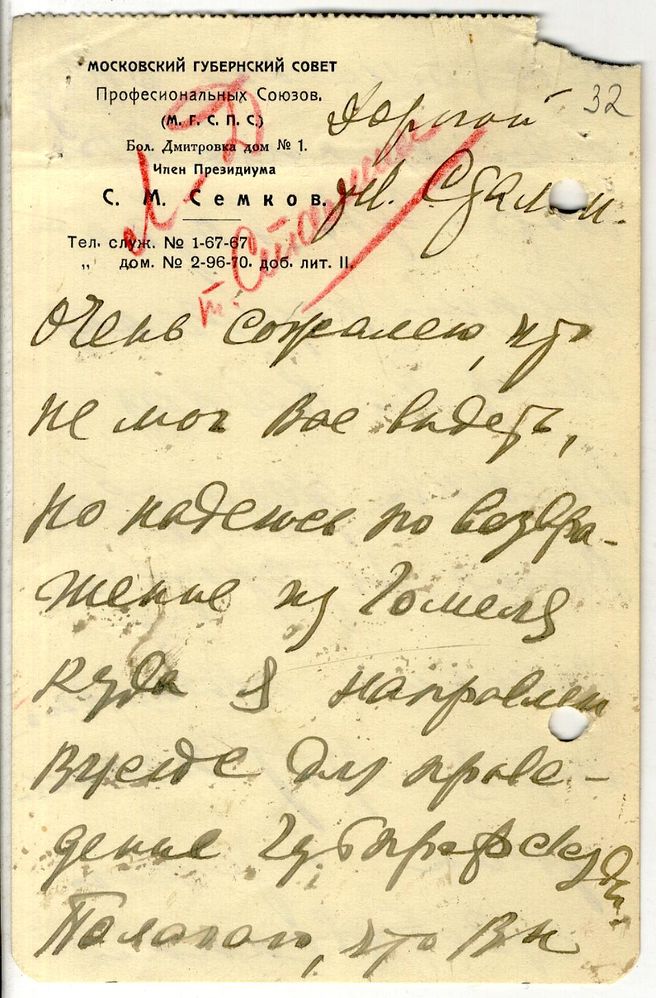 МОСКОВСКИЙ ГУБЕРНСКИЙ СОВЕТ
Професиональных Союзов.
(М. Г. С. П. С.)
Бол. Дмитровка дом № 1.
Член Президиума
С. М. Семков.
Тел. служ. № 1-67-67
„ дом. № 2-96-70. доб. лит. II.
32
Дорогой
т. Сталин.
Очень сожалею, что
не мог Вас видеть,
но надеюсь по возвра-
щение из Гомеля
куда я направлен
В
для прове-
дение Губпрофсъезда.
Полагаю, что Вы